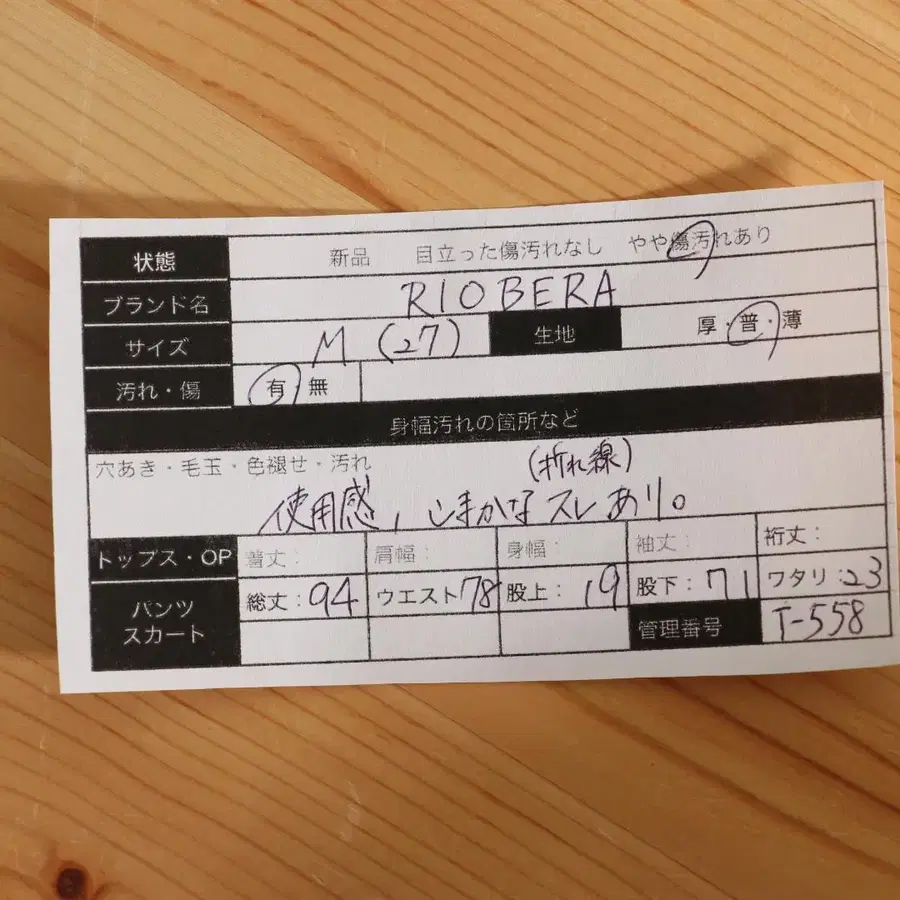 状態 新品 目立った傷汚れなし やや傷汚れあり
ブランド名 RIOBERA
サイズ M (27) 生地 厚・普・薄
汚れ・傷 有・無
身幅汚れの箇所など
穴あき・毛玉・色褪せ・汚れ (折れ線)
使用感, しまかなスレあり。
トップス・OP 着丈: 肩幅: 身幅: 袖丈: 裄丈:
パンツ スカート 総丈:94 ウエスト78 股上:19 股下:71 ワタリ:23
管理番号 T-558